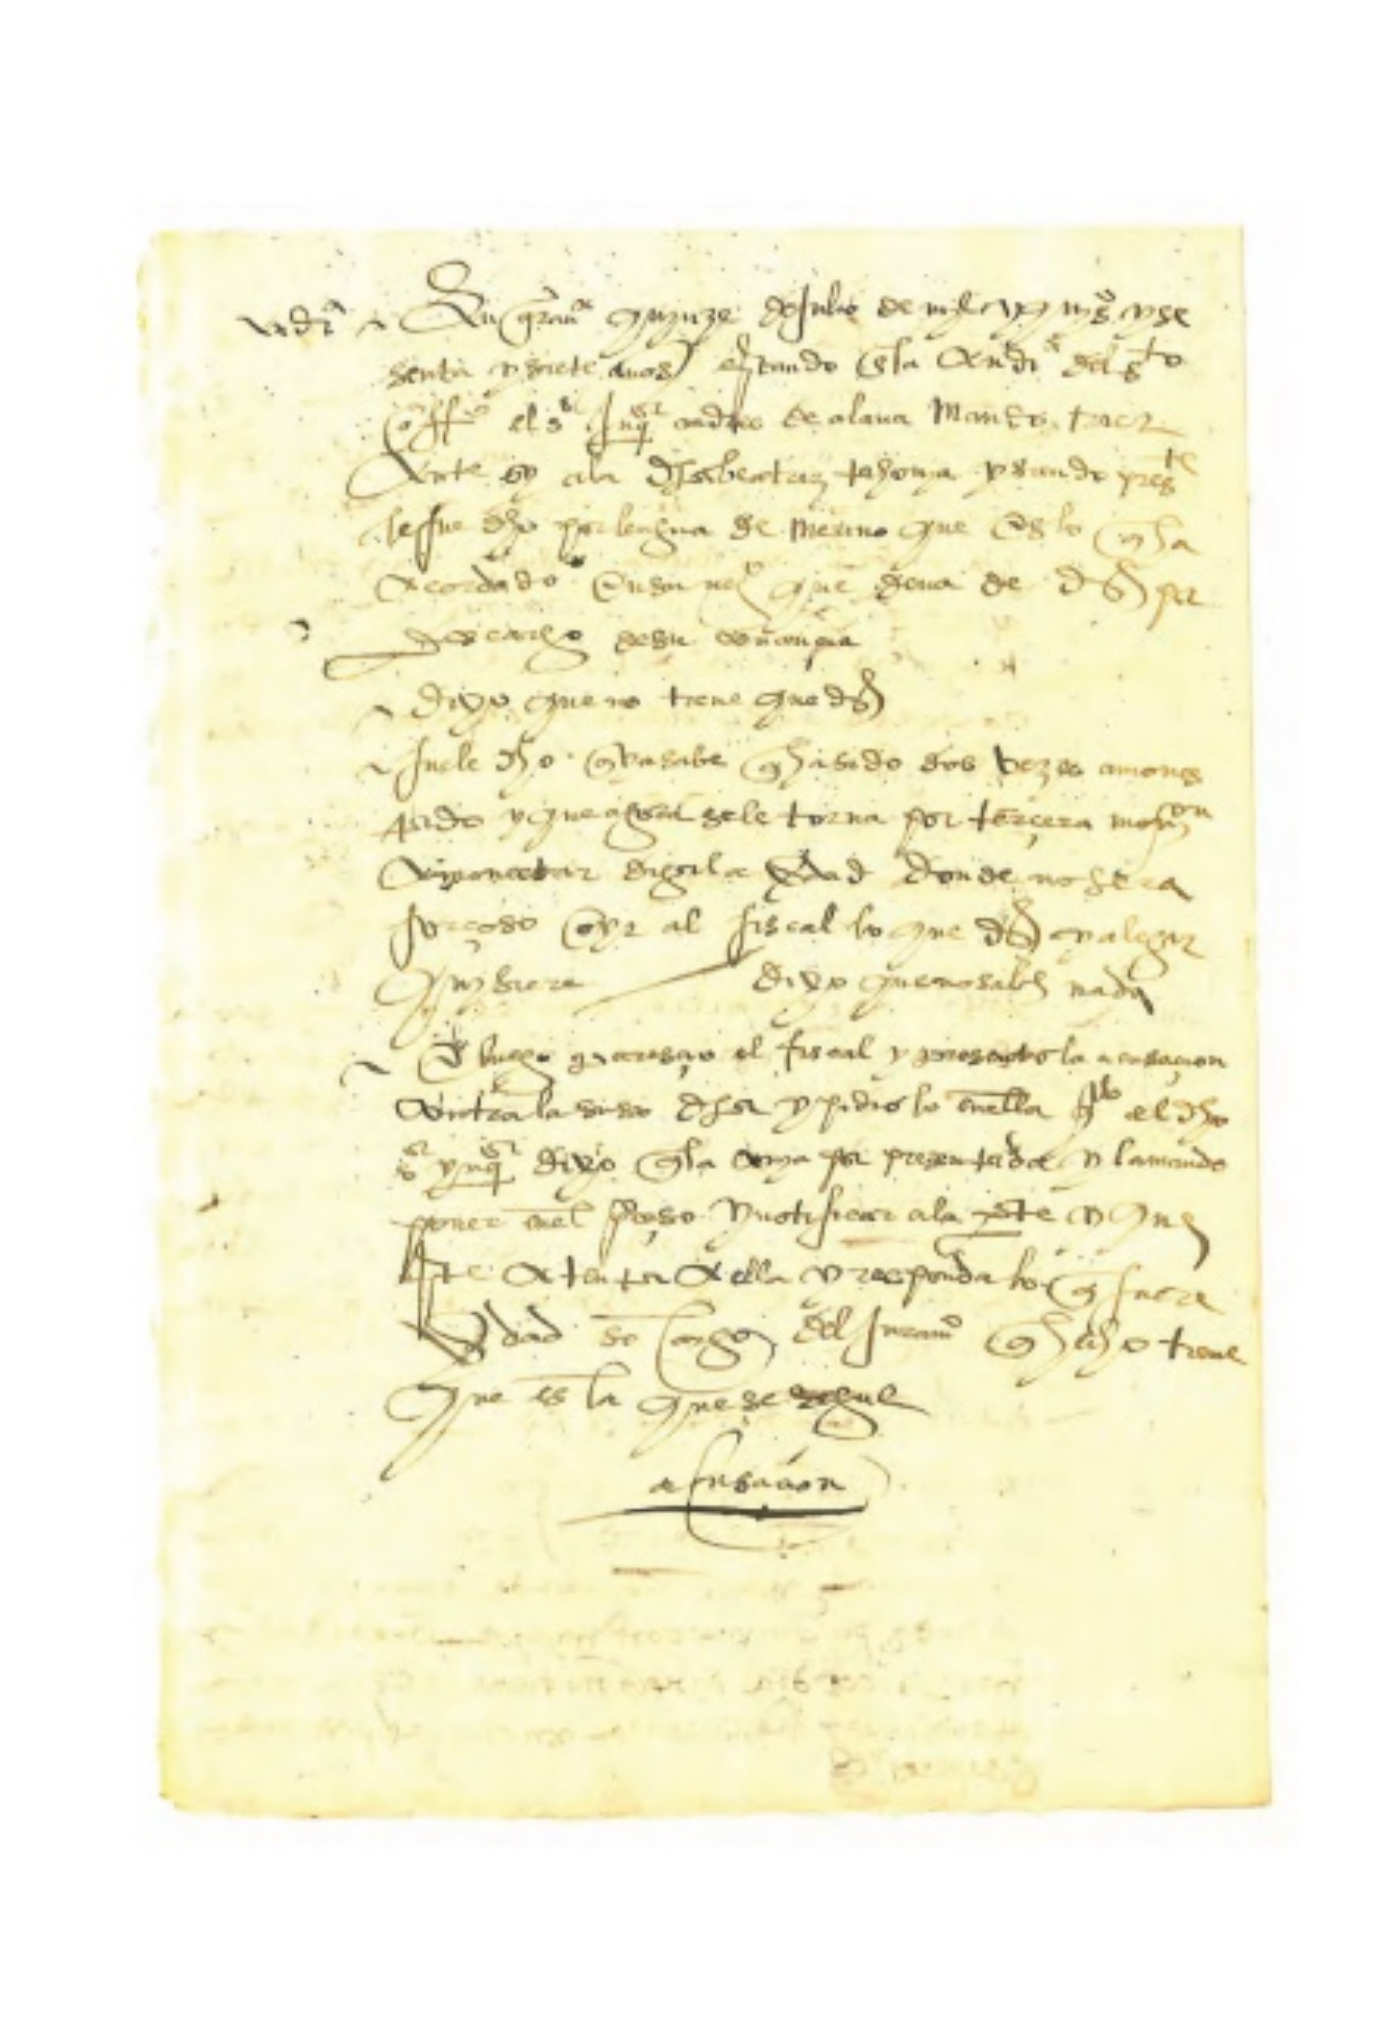 audiª En granª quinze de julio de mil e quis y se
senta y siete años estando en la audiª del sto
offº el sr Inqor andres de alava mando traer
Ante sy a la dha beatriz y siendo preste
le fue dho por lengua de merino que es lo q ha
acordado en su negº que deva de dezir por
descargo de su conciencia
dixo que no tiene que dezir
fuele dho q ya sabe q ha sido dos vezes amones
tado y que agora se le torna por tercera moon
a amonestar diga la verdad donde no sera
forçoso oyr al fiscal lo que dezir y alegar
quisiere dixo que no sabe nada
E luego parescio el fiscal y presento la acusacion
contra la suso dha y pidio lo en ella qdo e el dho
sr ynqor dixo q la avia por presentada y la mando
poner en el proçeso y notificar a la pte y que
este atenta a ella y responda lo q fuere
verdad so cargo del juramº q hecho tiene
que es la que se sigue
acusacion